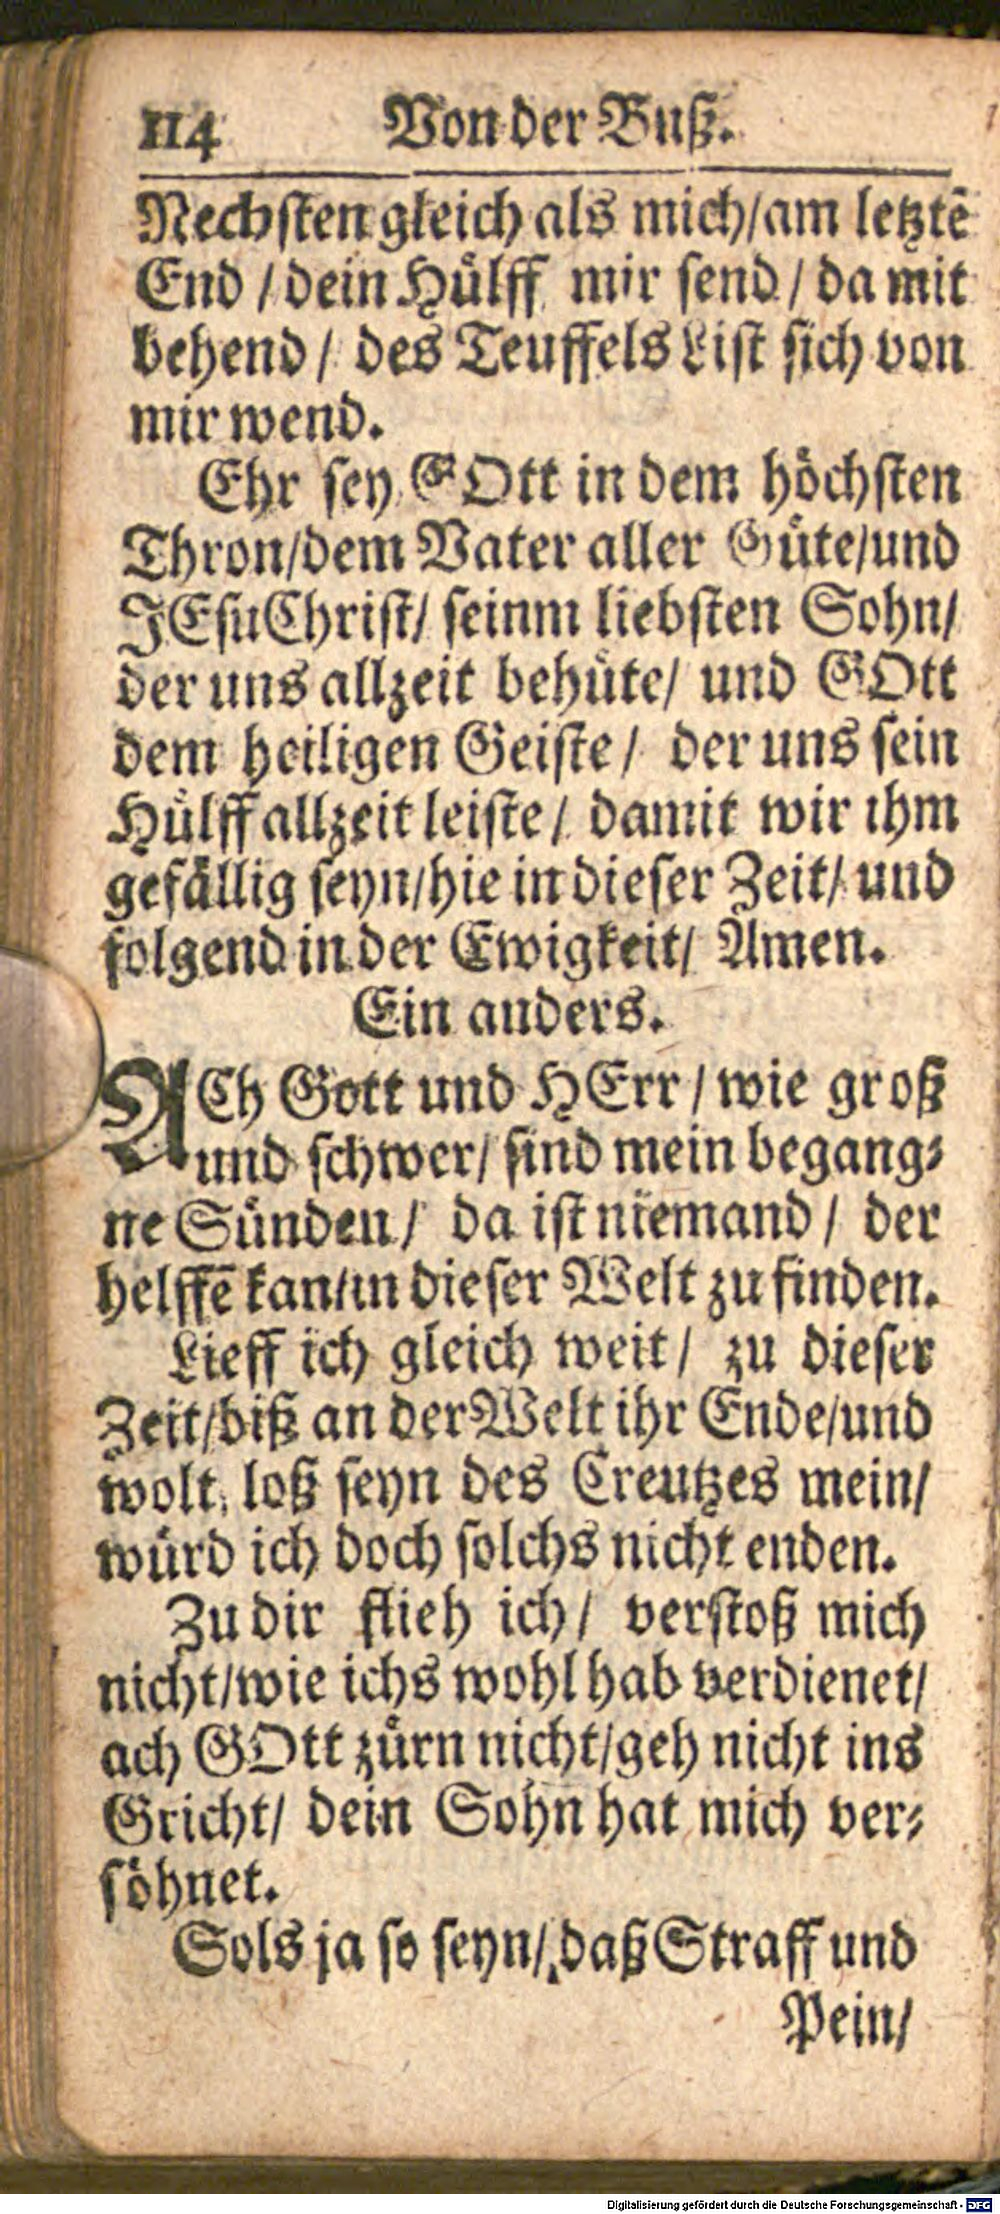 114 Von der Buß.
Nechsten gleich als mich/am letztē
End / dein Hülff mir send / da mit
behend / des Teuffels List sich von
mir wend.
Ehr sey GOtt in dem höchsten
Thron/dem Vater aller Güte/und
JEsu Christ/ seinm liebsten Sohn/
der uns allzeit behüte/ und GOtt
dem heiligen Geiste / der uns sein
Hülff allzeit leiste / damit wir ihm
gefällig seyn/hie in dieser Zeit/ und
folgend in der Ewigkeit/ Amen.
Ein anders.
ACh Gott und HErr / wie groß
und schwer/ sind mein begang⸗
ne Sünden / da ist niemand / der
helffē kan/in dieser Welt zu finden.
Lieff ich gleich weit / zu dieser
Zeit/biß an der Welt ihr Ende/und
wolt loß seyn des Creutzes mein/
würd ich doch solchs nicht enden.
Zu dir flieh ich / verstoß mich
nicht/wie ichs wohl hab verdienet/
ach GOtt zürn nicht/geh nicht ins
Gricht/ dein Sohn hat mich ver⸗
söhnet.
Sols ja so seyn/ daß Straff und
Pein/
Digitalisierung gefördert durch die Deutsche Forschungsgemeinschaft - DFG